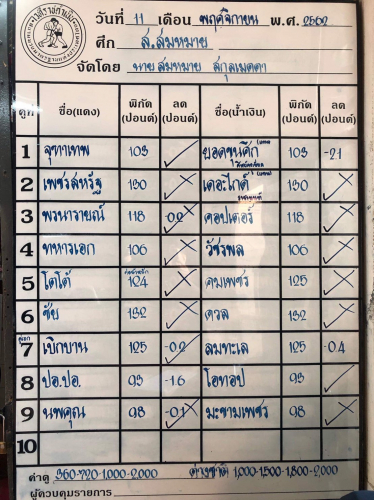 วันที่ 11 เดือน พฤศจิกายน พ.ศ. 2562
ศึก ส.สมหมาย
จัดโดย นายสมหมาย สกุลเมตตา
คู่ที่ ชื่อ(แดง) พิกัด (ปอนด์) ลด (ปอนด์) ชื่อ(น้ำเงิน) พิกัด (ปอนด์) ลด (ปอนด์)
1 จุฑาเทพ 103 ยอดขุนศึก 103 -2.1
2 เพชรสหรัฐ 130 เดอะไกด์ 130
3 พรนารายณ์ 118 -0.2 คอปเตอร์ 118
4 ทหารเอก 106 วัชรพล 106
5 โตโต้ 124 คมเพชร 125
6 ชัย 132 ดวล 132
คู่เอก 7 เบิกบาน 125 -0.2 ลมทะเล 125 -0.4
8 ปอ.ปอ. 93 -1.6 โอทอป 93
9 นพคุณ 98 -0.1 มะขามเพชร 98
10
ค่าดู 360-720-1,000-2,000 ต่างชาติ 1,000-1,500-1,800-2,000
ผู้ควบคุมรายการ